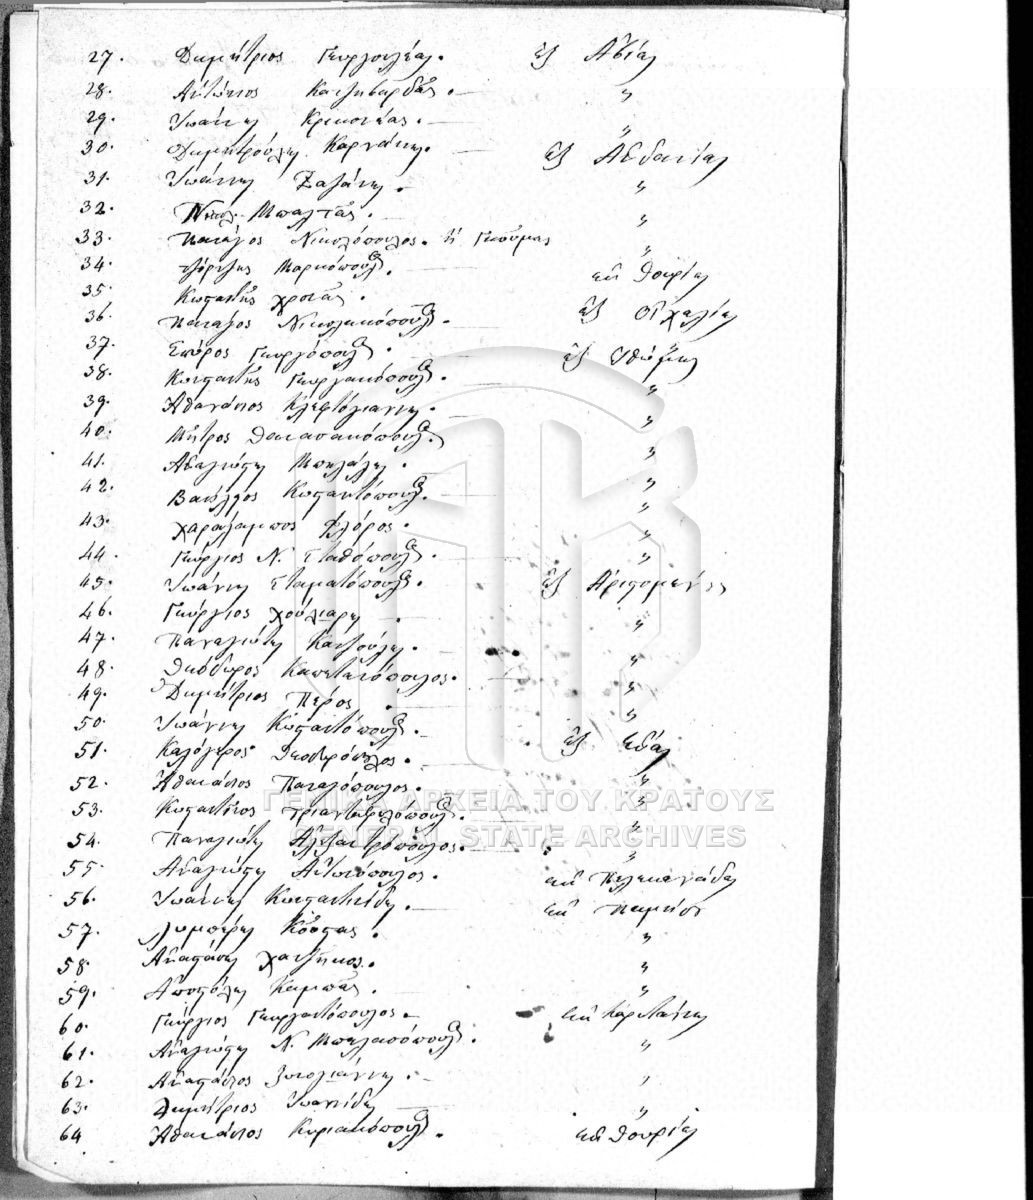 27. Δημήτριος Γεωργουλέας. ἐξ Ἀβίας
28. Ἀντώνιος Κατζηβαρδᾶς. "
29. Ἰωάννης Κρικονέας. "
30. Δημητρούλης Καρνάκης. ἐξ Ἀνδανίας
31. Ἰωάννης Ζαζάνης. "
32. Νικολ. Μπαλτᾶς. "
33. Παναγος Νικολόπουλος. ἢ Γκούμας "
34. Τζώρτζης Μαρκόπουλος. ἐκ Θουρίας
35. Κωσταντῆς Χρονᾶς.
36. Παναγος Νικολακόπουλος. ἐξ Οἰχαλίας
37. Σπύρος Γεωργόπουλος. ἐξ Ἰθώμης
38. Κωσταντῆς Γεωργακόπουλος. "
39. Ἀθανάσιος Κλεφτόγιαννης. "
40. Μῆτρος Θανασακόπουλος. "
41. Ἀναγνώστης Μπελάλης. "
42. Βασίλειος Κωσταντόπουλος. "
43. Χαράλαμπος Φλόρος. "
44. Γεώργιος Ν. Σταθόπουλος. "
45. Ἰωάννης Σταματόπουλος. ἐξ Ἀριστομένους
46. Γεώργιος Χούλιαρης. "
47. Παναγιώτης Κατζούλης. "
48. Θεόδωρος Καπετανόπουλος. "
49. Δημήτριος Πέρος. "
50. Ἰωάννης Κωσταντόπουλος.
51. Καλόγερος Θεοδωρόπουλος. ἐξ Εὔας
52. Ἀθανάσιος Παναγόπουλος. "
53. Κωσταντῖνος Τριανταφυλόπουλος. "
54. Παναγιώτης Ἀλεξαντρόπουλος. "
55. Ἀναγνώστης Ἀντωνόπουλος. ἐκ Πελεκανάδας
56. Ἰωάννης Κωνσταντινίδης. ἐκ Παμήσου
57. Λυμπέρης Κόστας. "
58. Ἀναστάσης Χατζῆκος. "
59. Ἀποστόλης Καμπᾶς. "
60. Γεώργιος Γεωργαντόπουλος. ἐκ Καρτάνης
61. Ἀναγνώστης Ν. Μπελασόπουλος. "
62. Ἀναστάσιος Ζωτογιάννης. "
63. Δημήτριος Ἰωαννίδης "
64 Ἀθανάσιος Κυριακόπουλος. ἐκ Θουρίας
ΓΕΝΙΚΑ ΑΡΧΕΙΑ ΤΟΥ ΚΡΑΤΟΥΣ
GENERAL STATE ARCHIVES